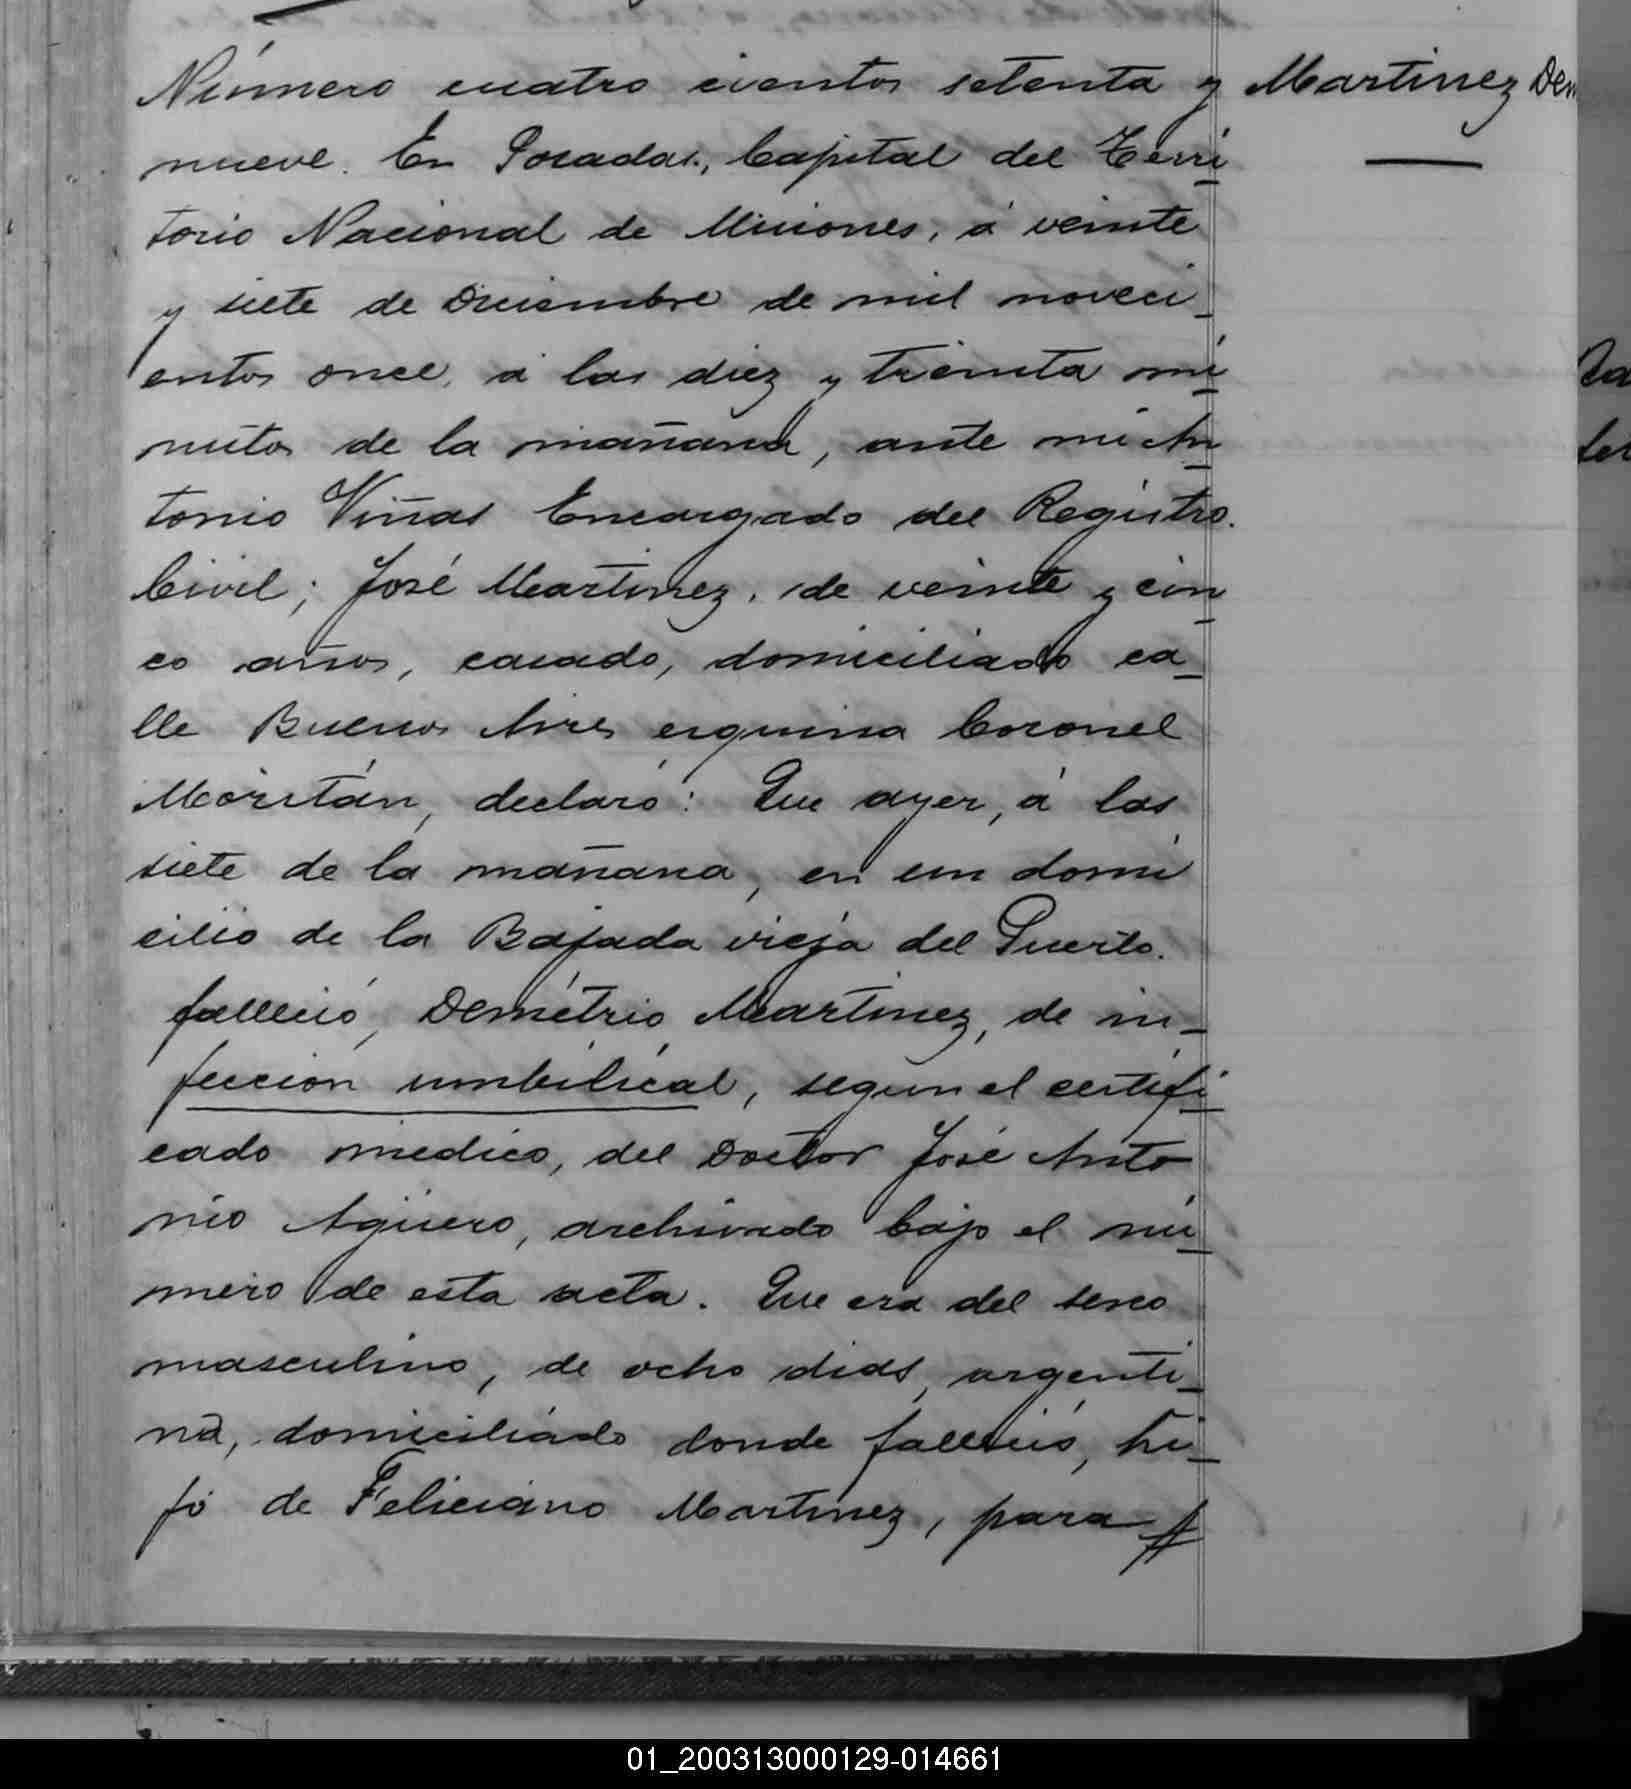 Número cuatro cientos setenta y
Martinez Dem
nueve. En Posadas, Capital del Terri
torio Nacional de Misiones, á veinte
y siete de Diciembre de mil noveci_
entos once, á las diez y treinta mi
nutos de la mañana, ante mi An
tonio Viñas Encargado del Registro
Civil; José Martinez, de veinte y cin
co años, casado, domiciliado ca_
lle Buenos Aires esquina Coronel
Moritán, declaró: Que ayer, á las
siete de la mañana, en un domi
cilio de la Bajada vieja del Puerto.
falleció, Demétrio Martinez, de in_
feccion umbilical, segun el certifi
cado médico, del Doctor José Anto
nio Agüero, archivado bajo el nú
mero de esta acta. Que era del sexo
masculino, de ocho dias, argenti_
no, domiciliado donde falleció, hi_
jo de Feliciano Martinez, para
01_200313000129-014661